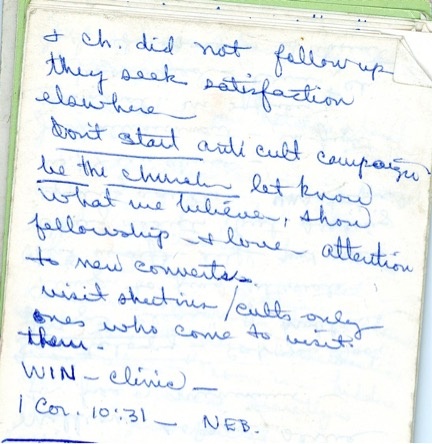 & ch. did not follow up
they seek satisfaction
elsewhere
Don't start anti cult campaign
be the church let know
what we believe, show
fellowship & love attention
to new converts.
visit /cults only
ones who come to visit
them.
WIN - clinic -
1 Cor. 10:31 - NEB.